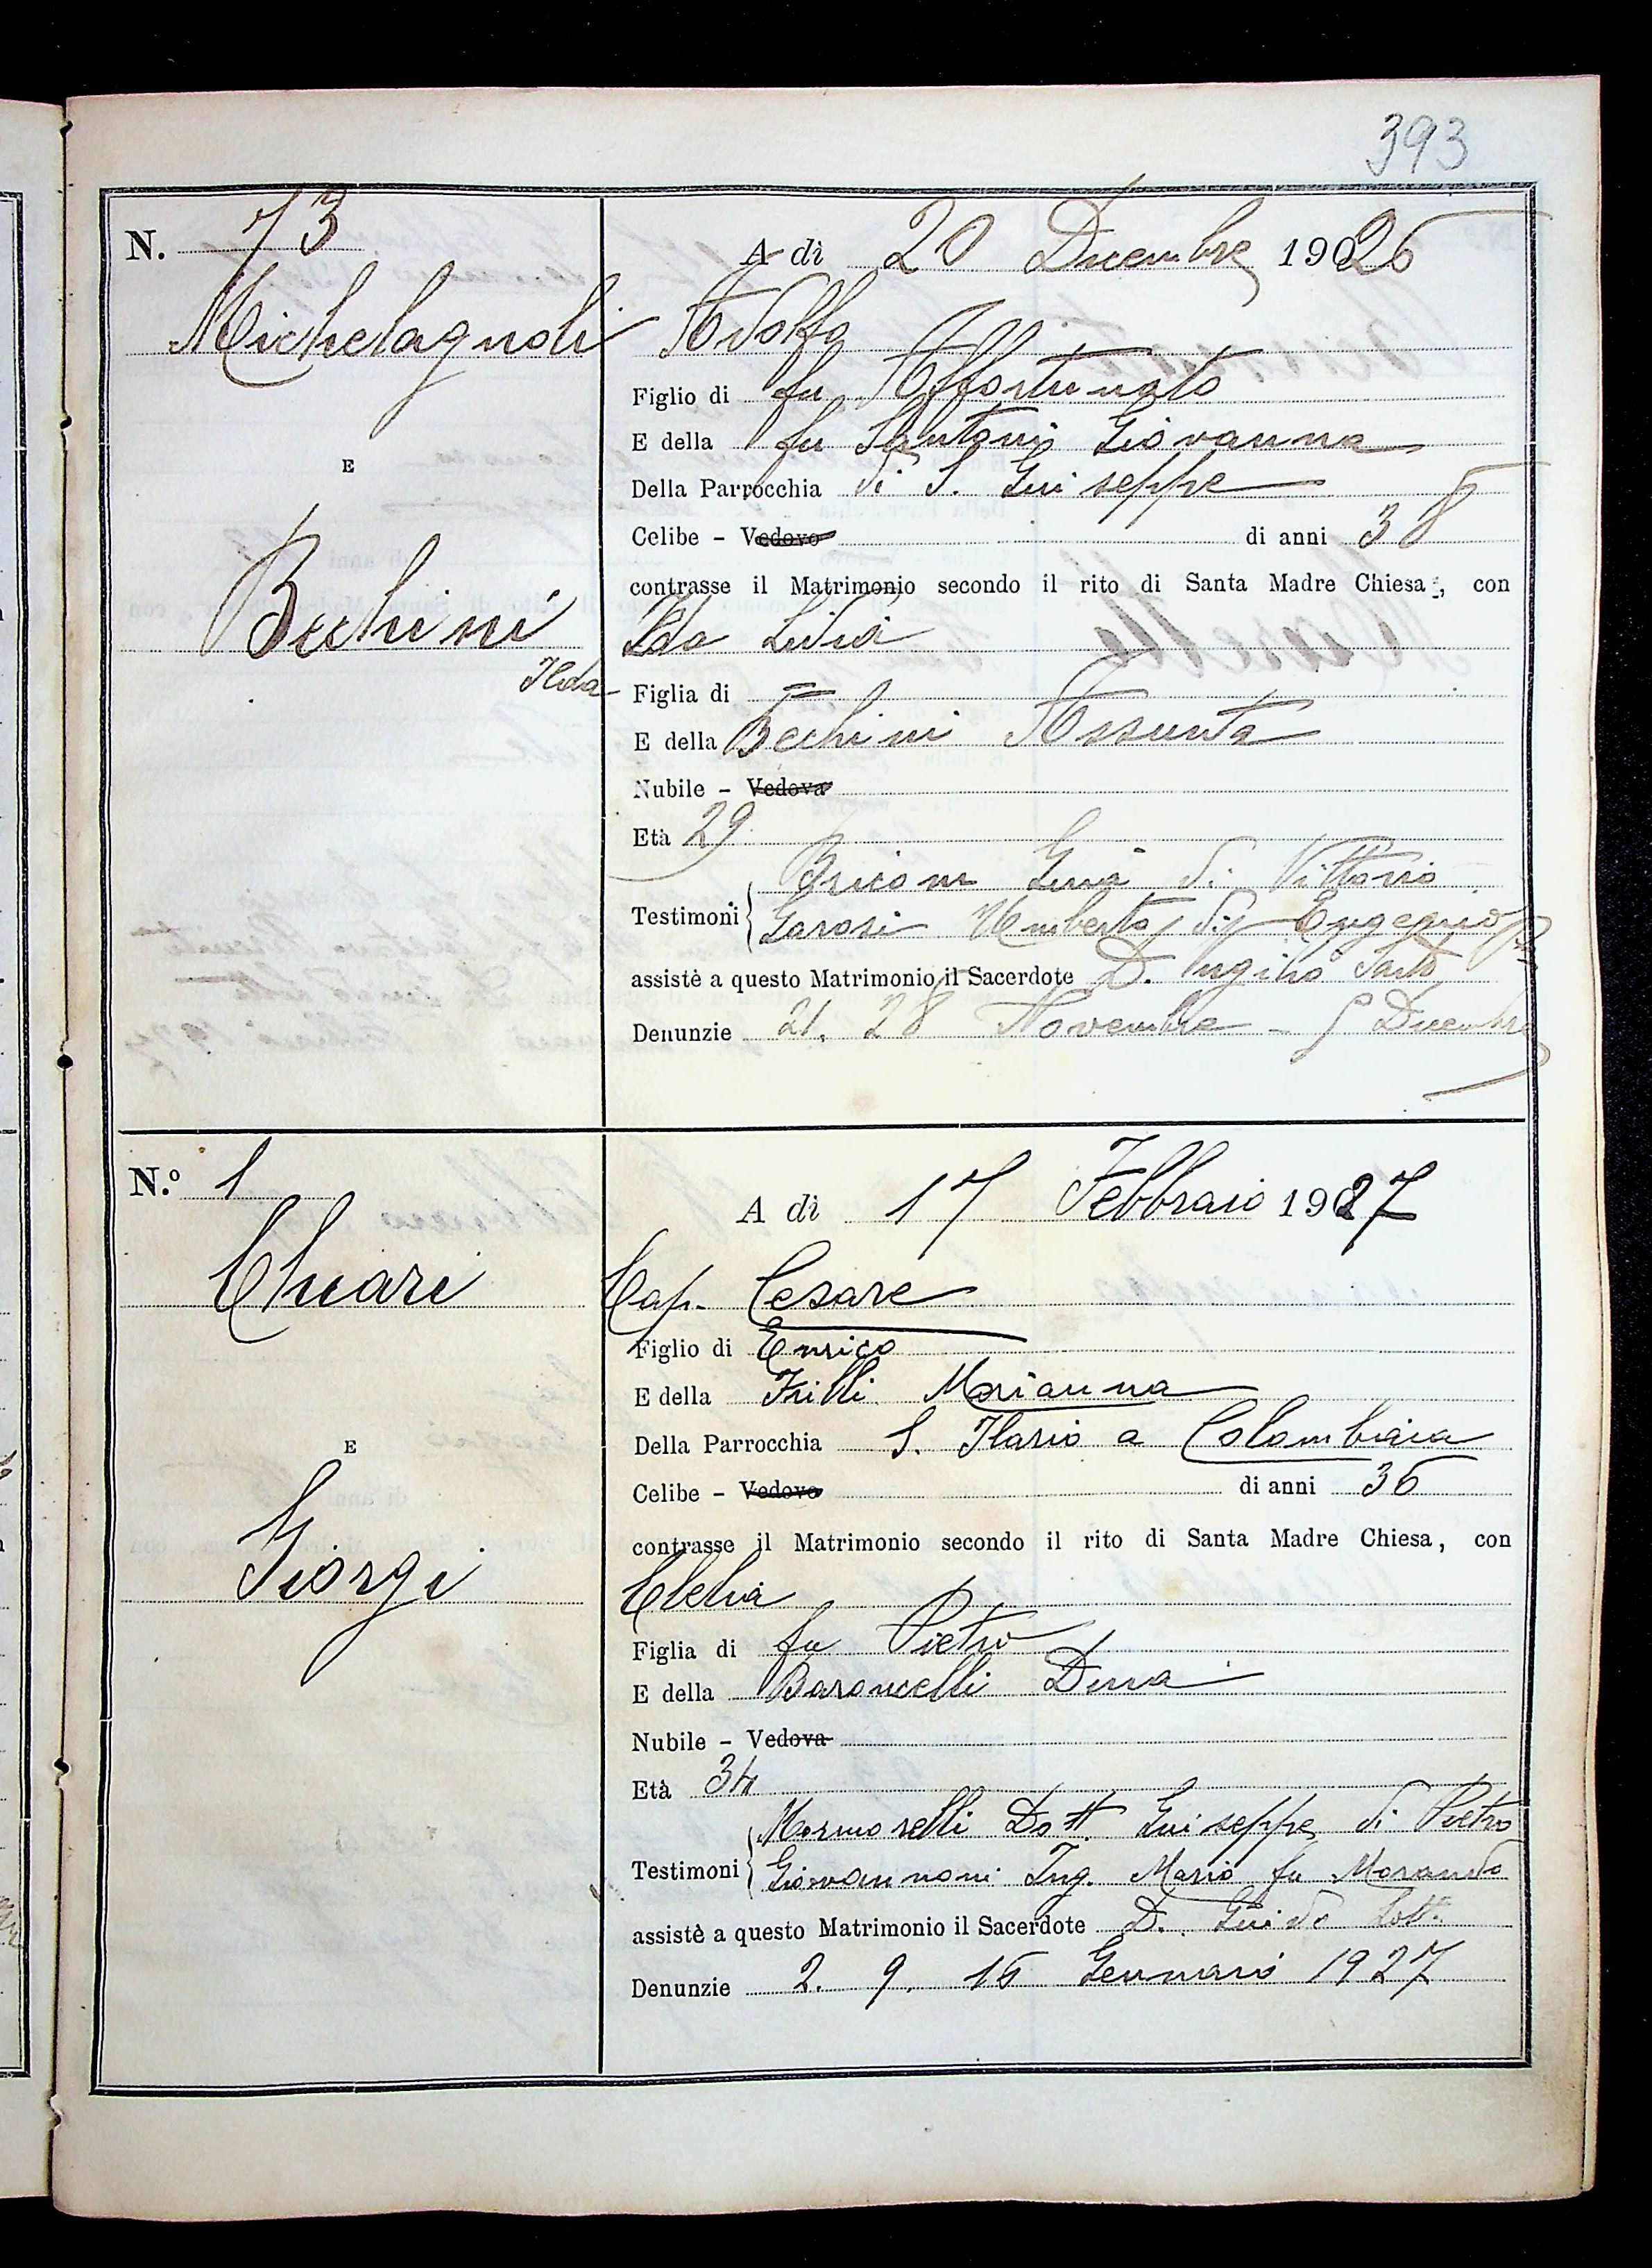 393
N. 73
A dì 20 Dicembre 1926
Michelagnoli
Adolfo
Figlio di fu Affortunato
E della fu Santoni Giovanna
E
Della Parrocchia di S. Giuseppe
Celibe - Vedovo di anni 38
contrasse il Matrimonio secondo il rito di Santa Madre Chiesa, con
Bechini
Ilda
Ilda Livia
Figlia di =
E della Bechini Assunta
Nubile - Vedova
Età 29
di Vittorio
Testimoni Garosi Umberto di
assistè a questo Matrimonio il Sacerdote D.
Denunzie 21. 28 Novembre - 5 Dicembre
N.º 1
A dì 17 Febbraio 1927
Chiari
Cap. Cesare
Figlio di Enrico
E della Frilli Marianna
Della Parrocchia S. Ilario a Colombaia
E
Celibe - Vedovo di anni 36
contrasse il Matrimonio secondo il rito di Santa Madre Chiesa, con
Giorgi
Clelia
Figlia di fu Pietro
E della Baroncelli Dina
Nubile - Vedova
Età 34
Marmorelli Dott. Giuseppe di Pietro
Testimoni Giovannoni Ing. Mario fu Morando
assistè a questo Matrimonio il Sacerdote D. Guido
Denunzie 2. 9. 16 Gennaio 1927